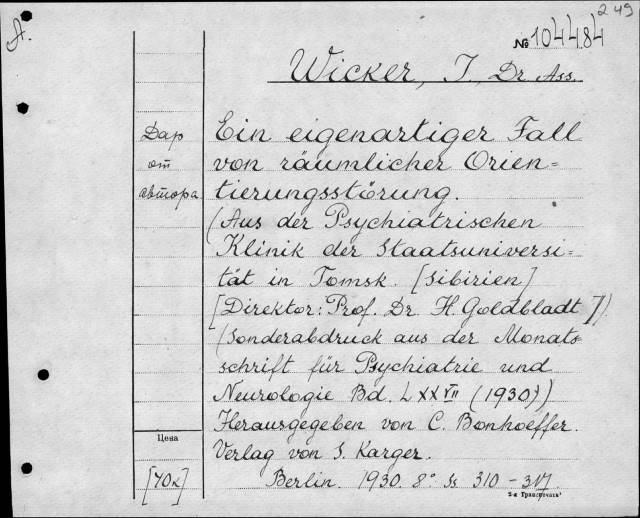 249
A.
№ 104484
Wicker, I. Dr Ass.
Дар
от
автора
Ein eigenartiger Fall
von räumlicher Orien=
tierungsstörung.
(Aus der Psychiatrischen
Klinik der Staatsuniversi-
tät in Tomsk. [Sibirien]
[Direktor: Prof. Dr. H. Goldbladt])
(Sonderabdruck aus der Monats=
schrift für Psychiatrie und
Neurologie Bd. LXXVII (1930))
Herausgegeben von C. Bonhoeffer.
Verlag von S. Karger.
Berlin. 1930. 8° Ss 310-317.
Цена
[70к]
2-я Транспечать